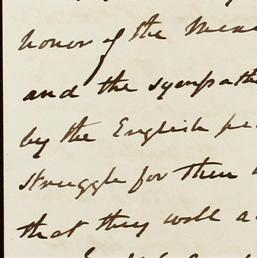 honor of the
and the sympath
by the English pe
struggle for their
that they will a